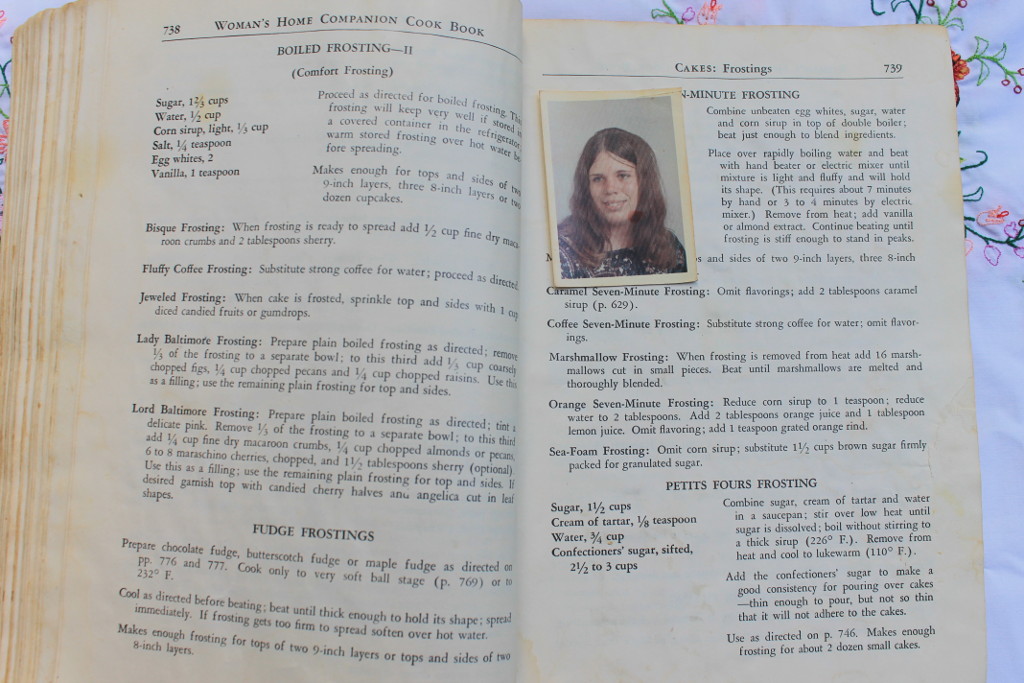 738 WOMAN'S HOME COMPANION COOK BOOK
BOILED FROSTING—II
(Comfort Frosting)
Sugar, 1⅔ cups
Water, ½ cup
Corn sirup, light, ⅓ cup
Salt, ¼ teaspoon
Egg whites, 2
Vanilla, 1 teaspoon
Proceed as directed for boiled frosting. This
frosting will keep very well if stored in
a covered container in the refrigerator;
warm stored frosting over hot water be-
fore spreading.
Makes enough for tops and sides of two
9-inch layers, three 8-inch layers or two
dozen cupcakes.
Bisque Frosting: When frosting is ready to spread add ½ cup fine dry maca-
roon crumbs and 2 tablespoons sherry.
Fluffy Coffee Frosting: Substitute strong coffee for water; proceed as directed.
Jeweled Frosting: When cake is frosted, sprinkle top and sides with 1 cup
diced candied fruits or gumdrops.
Lady Baltimore Frosting: Prepare plain boiled frosting as directed; remove
⅓ of the frosting to a separate bowl; to this third add ⅓ cup coarsely
chopped figs, ¼ cup chopped pecans and ¼ cup chopped raisins. Use this
as a filling; use the remaining plain frosting for top and sides.
Lord Baltimore Frosting: Prepare plain boiled frosting as directed; tint a
delicate pink. Remove ⅓ of the frosting to a separate bowl; to this third
add ¼ cup fine dry macaroon crumbs, ¼ cup chopped almonds or pecans,
6 to 8 maraschino cherries, chopped, and 1½ tablespoons sherry (optional).
Use this as a filling; use the remaining plain frosting for top and sides. If
desired garnish top with candied cherry halves and angelica cut in leaf
shapes.
FUDGE FROSTINGS
Prepare chocolate fudge, butterscotch fudge or maple fudge as directed on
pp. 776 and 777. Cook only to very soft ball stage (p. 769) or to
232° F.
Cool as directed before beating; beat until thick enough to hold its shape; spread
immediately. If frosting gets too firm to spread soften over hot water.
Makes enough frosting for tops of two 9-inch layers or tops and sides of two
8-inch layers.
CAKES: Frostings 739
N-MINUTE FROSTING
Combine unbeaten egg whites, sugar, water
and corn sirup in top of double boiler;
beat just enough to blend ingredients.
Place over rapidly boiling water and beat
with hand beater or electric mixer until
mixture is light and fluffy and will hold
its shape. (This requires about 7 minutes
by hand or 3 to 4 minutes by electric
mixer.) Remove from heat; add vanilla
or almond extract. Continue beating until
frosting is stiff enough to stand in peaks.
M s and sides of two 9-inch layers, three 8-inch
Caramel Seven-Minute Frosting: Omit flavorings; add 2 tablespoons caramel
sirup (p. 629).
Coffee Seven-Minute Frosting: Substitute strong coffee for water; omit flavor-
ings.
Marshmallow Frosting: When frosting is removed from heat add 16 marsh-
mallows cut in small pieces. Beat until marshmallows are melted and
thoroughly blended.
Orange Seven-Minute Frosting: Reduce corn sirup to 1 teaspoon; reduce
water to 2 tablespoons. Add 2 tablespoons orange juice and 1 tablespoon
lemon juice. Omit flavoring; add 1 teaspoon grated orange rind.
Sea-Foam Frosting: Omit corn sirup; substitute 1½ cups brown sugar firmly
packed for granulated sugar.
PETITS FOURS FROSTING
Sugar, 1½ cups
Cream of tartar, ⅛ teaspoon
Water, ¾ cup
Confectioners' sugar, sifted,
2½ to 3 cups
Combine sugar, cream of tartar and water
in a saucepan; stir over low heat until
sugar is dissolved; boil without stirring to
a thick sirup (226° F.). Remove from
heat and cool to lukewarm (110° F.).
Add the confectioners' sugar to make a
good consistency for pouring over cakes
—thin enough to pour, but not so thin
that it will not adhere to the cakes.
Use as directed on p. 746. Makes enough
frosting for about 2 dozen small cakes.